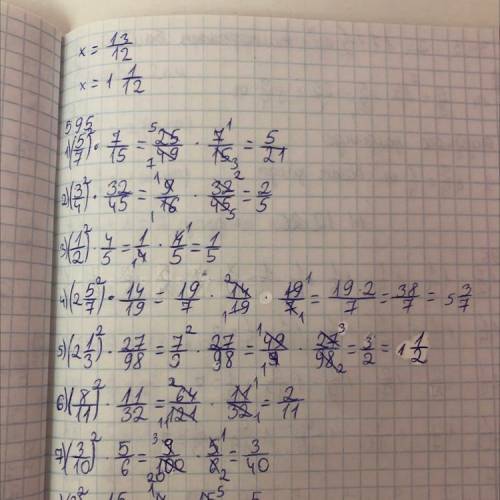 x = 13/12
x = 1 1/12
595
1) (5/7)² · 7/15 = 25/49 · 7/15 = 5/21
2) (3/4)² · 32/45 = 9/16 · 32/45 = 2/5
3) (1/2)² · 4/5 = 1/4 · 4/5 = 1/5
4) (2 5/7)² · 14/19 = 19/7 · 14/19 · 19/7 = 19·2/7 = 38/7 = 5 3/7
5) (2 1/3)² · 27/98 = 7²/3 · 27/98 = 49/9 · 27/98 = 3/2 = 1 1/2
6) (8/11)² · 11/32 = 64/121 · 11/32 = 2/11
7) (3/10)² · 5/6 = 9/100 · 5/6 = 3/40